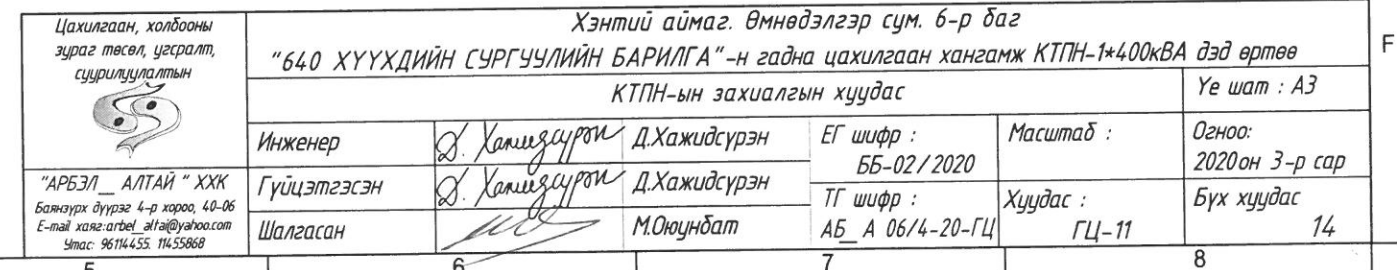 Цахилгаан, холбооны
зураг төсөл, угсралт,
суурилуулалтын
"АРБЭЛ__ АЛТАЙ " ХХК
Баянзүрх дүүрэг 4-р хороо, 40-06
E-mail хаяг:arbel_altai@yahoo.com
Утас: 96114455. 11455868
Хэнтий аймаг. Өмнөдэлгэр сум. 6-р баг
"640 ХҮҮХДИЙН СУРГУУЛИЙН БАРИЛГА"-н гадна цахилгаан хангамж КТПН-1*400кВА дэд өртөө
КТПН-ын захиалгын хуудас
Үе шат : А3
Инженер
Д. Хажидсүрэн
Д.Хажидсүрэн
ЕГ шифр :
ББ-02/2020
Масштаб :
Огноо:
2020он 3-р сар
Гүйцэтгэсэн
Д. Хажидсүрэн
Д.Хажидсүрэн
ТГ шифр :
АБ_ А 06/4-20-ГЦ
Хуудас :
ГЦ-11
Бүх хуудас
14
Шалгасан
М.Оюунбат
F
5
6
7
8